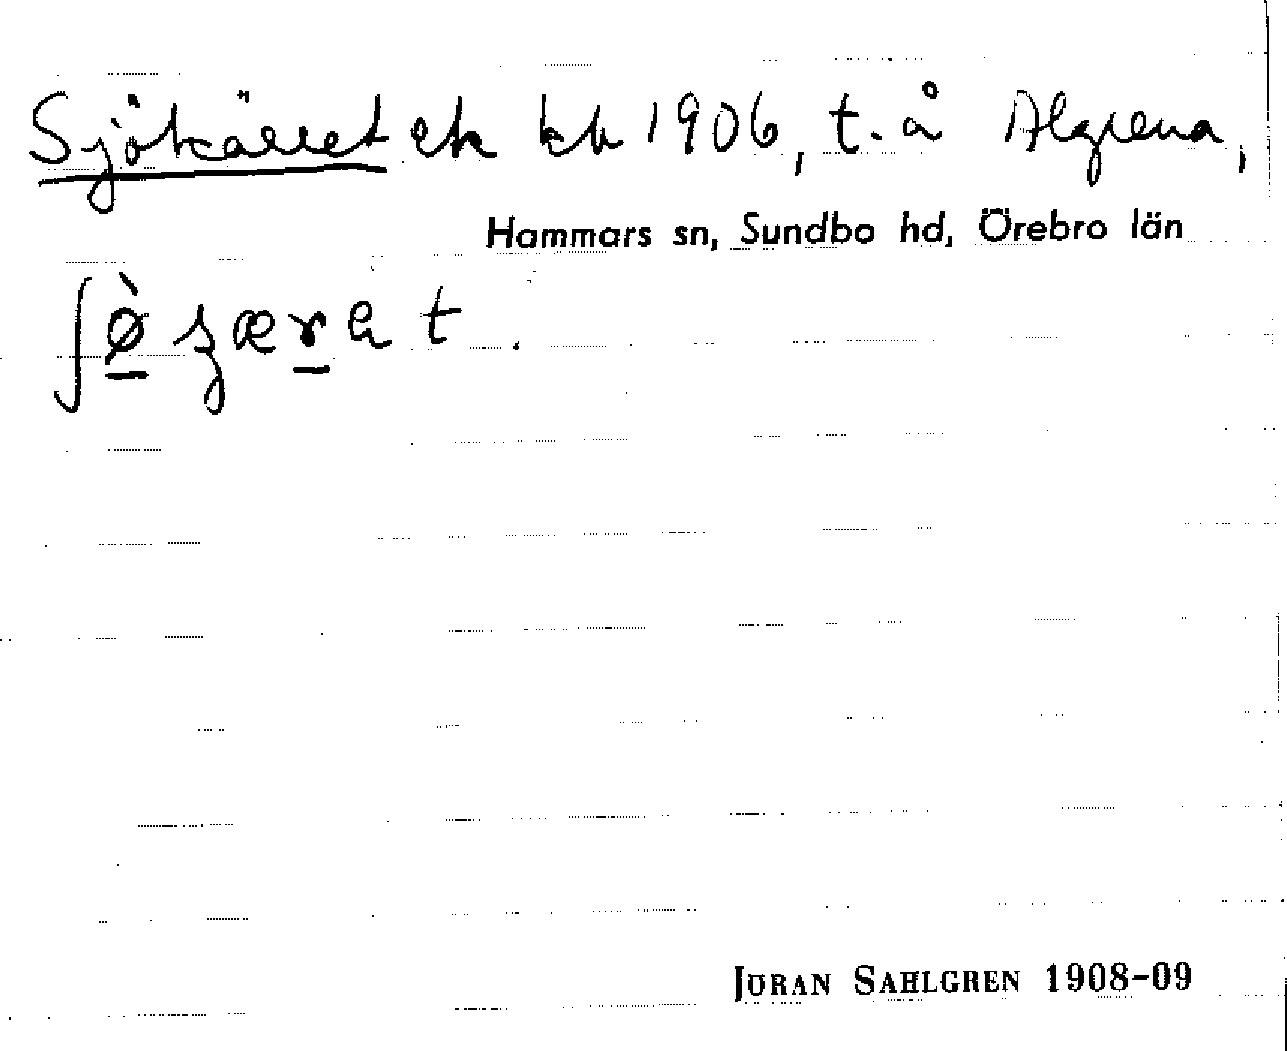 Sjökärret ek kb 1906, t. å Algrena,
Hammars sn, Sundbo hd, Örebro län
ʃø̀ʒærat.
JÖRAN SAHLGREN 1908-09